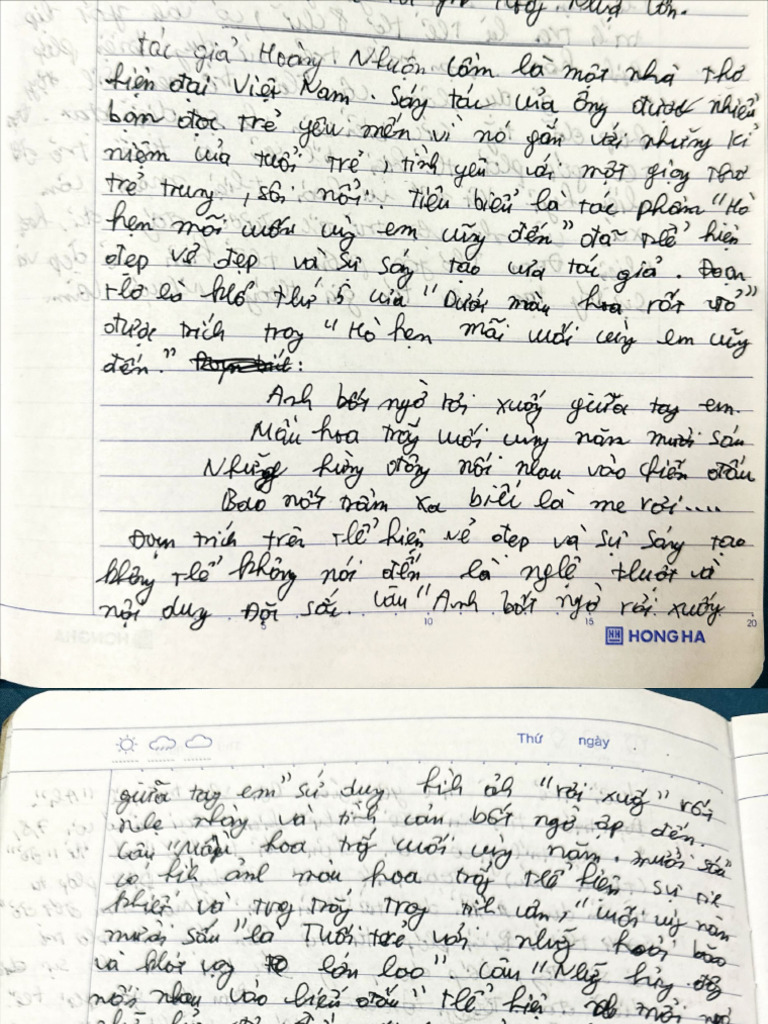 tác giả Hoàng Nhuận Cầm là một nhà thơ
hiện đại Việt Nam. Sáng tác của ông được nhiều
bạn đọc trẻ yêu mến vì nó gắn với những kỉ
niệm của tuổi trẻ, tình yêu với một giọng thơ
trẻ trung, sôi nổi. Tiêu biểu là tác phẩm "Hò
hẹn mãi cuối cùng em cũng đến" đã thể hiện
đẹp vẻ đẹp và sự sáng tạo của tác giả. Đoạn
thơ là khổ thứ 5 của "Dưới màu hoa rất đỏ"
được trích trong "Hò hẹn mãi cuối cùng em cũng
đến."
Anh bất ngờ rơi xuống giữa tay em.
Màu hoa trắng cuối cùng năm mười sáu
Những hừng đông nối nhau vào chiến đấu
Bao nốt trầm xa biếc là me rơi....
Đoạn trích trên thể hiện vẻ đẹp và sự sáng tạo
không thể không nói đến là nghệ thuật và
nội dung đặc sắc. Câu "Anh bất ngờ rơi xuống
HH HONG HA
5 10 15 20
Thứ ngày
giữa tay em" sử dụng hình ảnh "rơi xuống" rất
nhẹ nhàng và tình cảm bất ngờ ập đến.
Câu "Màu hoa trắng cuối cùng năm mười sáu"
có hình ảnh màu hoa trắng thể hiện sự
khiết và trong trắng trong tình cảm, "cuối cùng năm
mười sáu" là tuổi trẻ với những hoài bão
và khát vọng lớn lao", câu "Những hừng đông
nối nhau vào chiến đấu" thể hiện mỗi